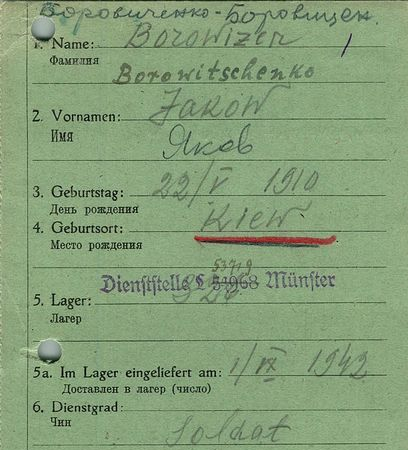 Боровиченко-Боровицен.
1. Name: Borowizen
Фамилия
Borowitschenko
2. Vornamen: Jakow
Имя
Яков
3. Geburtstag: 22/V 1910
День рождения
4. Geburtsort: Kiew
Место рождения
53719
Dienststelle L 51968 Münster
5. Lager: 326
Лагер
5a. Im Lager eingeliefert am: 1/IX 1942
Доставлен в лагер (число)
6. Dienstgrad: Soldat
Чин